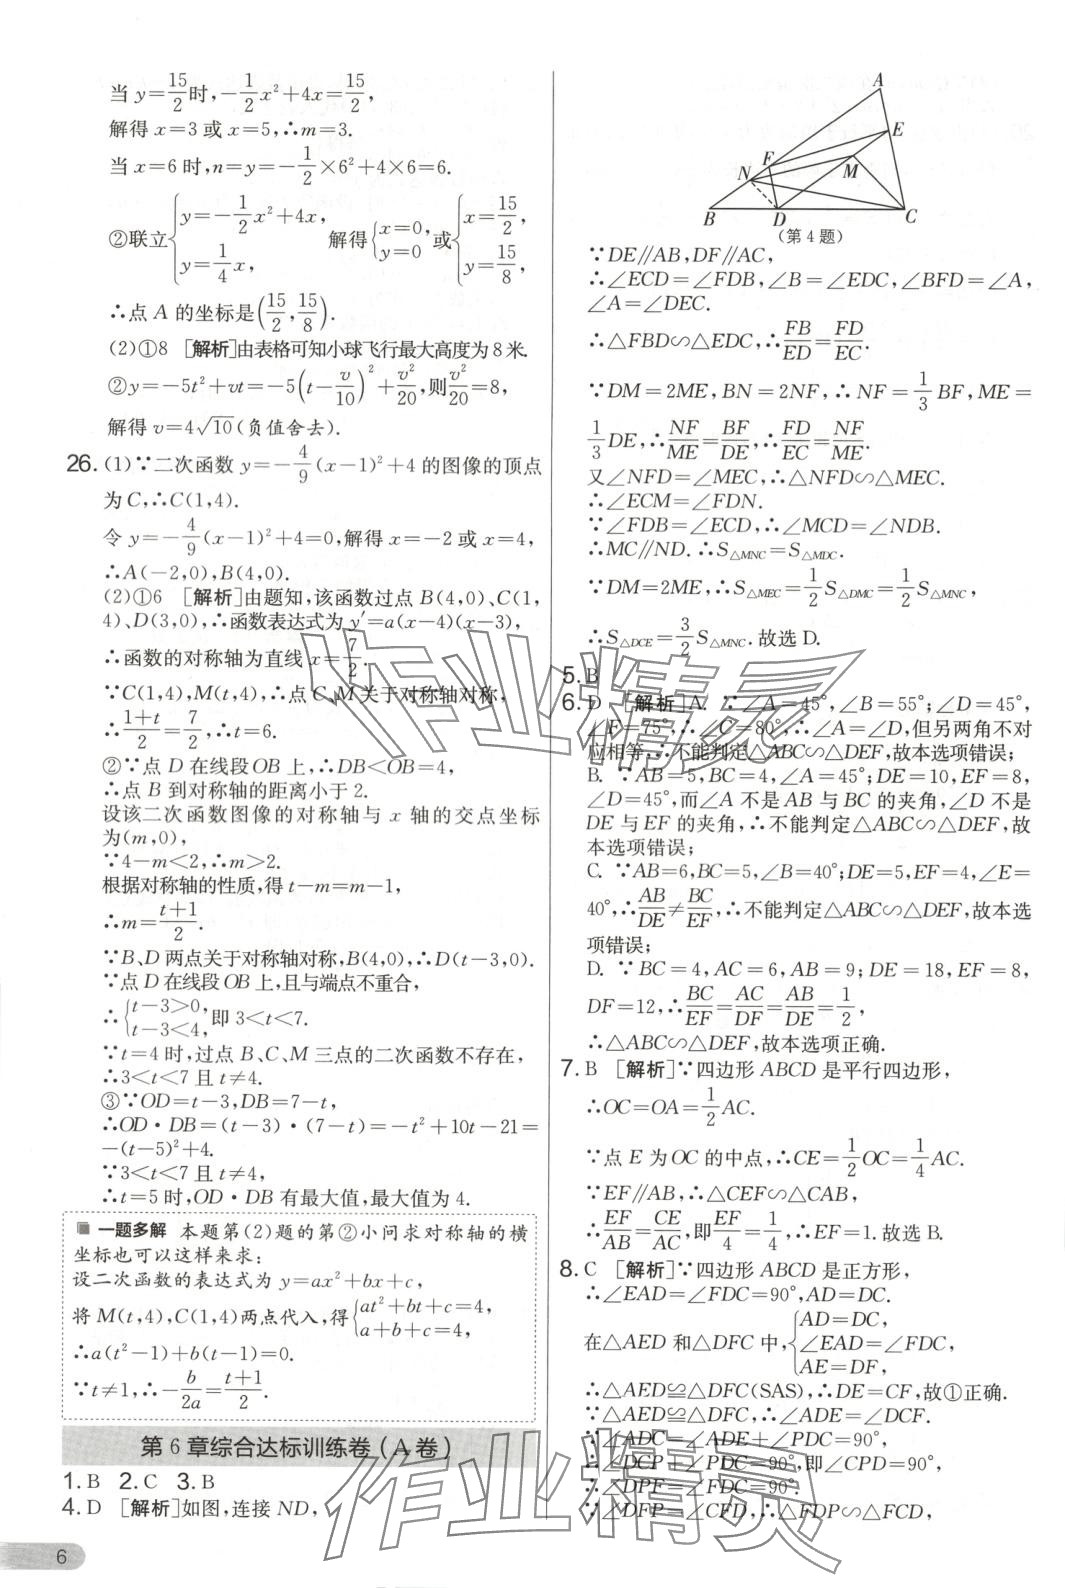 当 y=15/2 时,-1/2x²+4x=15/2,
解得 x=3 或 x=5,∴m=3.
当 x=6 时,n=y=-1/2×6²+4×6=6.
②联立{y=-1/2x²+4x, y=1/4x, 解得{x=0, y=0 或{x=15/2, y=15/8,
∴点 A 的坐标是(15/2,15/8).
(2)①8 [解析]由表格可知小球飞行最大高度为 8 米.
②y=-5t²+vt=-5(t-v/10)²+v²/20,则v²/20=8,
解得 v=4√10(负值舍去).
26. (1)∵二次函数 y=-4/9(x-1)²+4 的图像的顶点
为 C,∴C(1,4).
令 y=-4/9(x-1)²+4=0,解得 x=-2 或 x=4,
∴A(-2,0),B(4,0).
(2)①6 [解析]由题知,该函数过点 B(4,0)、C(1,
4)、D(3,0),∴函数表达式为 y′=a(x-4)(x-3),
∴函数的对称轴为直线 x=7/2.
∵C(1,4),M(t,4),∴点 C、M 关于对称轴对称,
∴(1+t)/2=7/2,∴t=6.
②∵点 D 在线段 OB 上,∴DB<OB=4,
∴点 B 到对称轴的距离小于 2.
设该二次函数图像的对称轴与 x 轴的交点坐标
为(m,0),
∵4-m<2,∴m>2.
根据对称轴的性质,得 t-m=m-1,
∴m=(t+1)/2.
∵B、D 两点关于对称轴对称,B(4,0),∴D(t-3,0).
∵点 D 在线段 OB 上,且与端点不重合,
∴{t-3>0, t-3<4, 即 3<t<7.
∵t=4 时,过点 B、C、M 三点的二次函数不存在,
∴3<t<7 且 t≠4.
③∵OD=t-3,DB=7-t,
∴OD·DB=(t-3)·(7-t)=-t²+10t-21=
-(t-5)²+4.
∵3<t<7 且 t≠4,
∴t=5 时,OD·DB 有最大值,最大值为 4.
一题多解 本题第(2)题的第②小问求对称轴的横
坐标也可以这样来求:
设二次函数的表达式为 y=ax²+bx+c,
将 M(t,4),C(1,4)两点代入,得{at²+bt+c=4, a+b+c=4,
∴a(t²-1)+b(t-1)=0.
∵t≠1,∴-b/2a=(t+1)/2.
第 6 章综合达标训练卷(A 卷)
1. B 2. C 3. B
4. D [解析]如图,连接 ND,
6
A
E
F
M
N
B D C
(第 4 题)
∵DE∥AB,DF∥AC,
∴∠ECD=∠FDB,∠B=∠EDC,∠BFD=∠A,
∠A=∠DEC.
∴△FBD∽△EDC,∴FB/ED=FD/EC.
∵DM=2ME,BN=2NF,∴NF=1/3BF,ME=
1/3DE,∴NF/ME=BF/DE,∴FD/EC=NF/ME.
又∠NFD=∠MEC,∴△NFD∽△MEC.
∴∠ECM=∠FDN.
∵∠FDB=∠ECD,∴∠MCD=∠NDB.
∴MC∥ND.∴S△MNC=S△MDC.
∵DM=2ME,∴S△MEC=1/2S△DMC=1/2S△MNC,
∴S△DCE=3/2S△MNC.故选 D.
5. B
6. D [解析]A. ∵∠A=45°,∠B=55°;∠D=45°,
∠F=75°,∴∠C=80°,∴∠A=∠D,但另两角不对
应相等,∴不能判定△ABC∽△DEF,故本选项错误;
B. ∵AB=5,BC=4,∠A=45°;DE=10,EF=8,
∠D=45°,而∠A 不是 AB 与 BC 的夹角,∠D 不是
DE 与 EF 的夹角,∴不能判定△ABC∽△DEF,故
本选项错误;
C. ∵AB=6,BC=5,∠B=40°;DE=5,EF=4,∠E=
40°,∴AB/DE≠BC/EF,∴不能判定△ABC∽△DEF,故本选
项错误;
D. ∵BC=4,AC=6,AB=9;DE=18,EF=8,
DF=12,∴BC/EF=AC/DF=AB/DE=1/2,
∴△ABC∽△DEF,故本选项正确.
7. B [解析]∵四边形 ABCD 是平行四边形,
∴OC=OA=1/2AC.
∵点 E 为 OC 的中点,∴CE=1/2OC=1/4AC.
∵EF∥AB,∴△CEF∽△CAB,
∴EF/AB=CE/AC,即EF/4=1/4,∴EF=1.故选 B.
8. C [解析]∵四边形 ABCD 是正方形,
∴∠EAD=∠FDC=90°,AD=DC.
在△AED 和△DFC 中,{AD=DC, ∠EAD=∠FDC, AE=DF,
∴△AED≌△DFC(SAS),∴DE=CF,故①正确.
∵△AED≌△DFC,∴∠ADE=∠DCF.
∵∠ADC=∠ADE+∠PDC=90°,
∴∠DCP+∠PDC=90°,即∠CPD=90°,
∴∠DPF=∠FDC=90°.
∵∠DFP=∠CFD,∴△FDP∽△FCD,
作业精灵
作业精灵